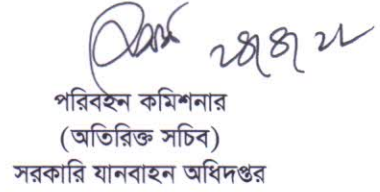 পরিবহন কমিশনার
(অতিরিক্ত সচিব)
সরকারি যানবাহন অধিদপ্তর